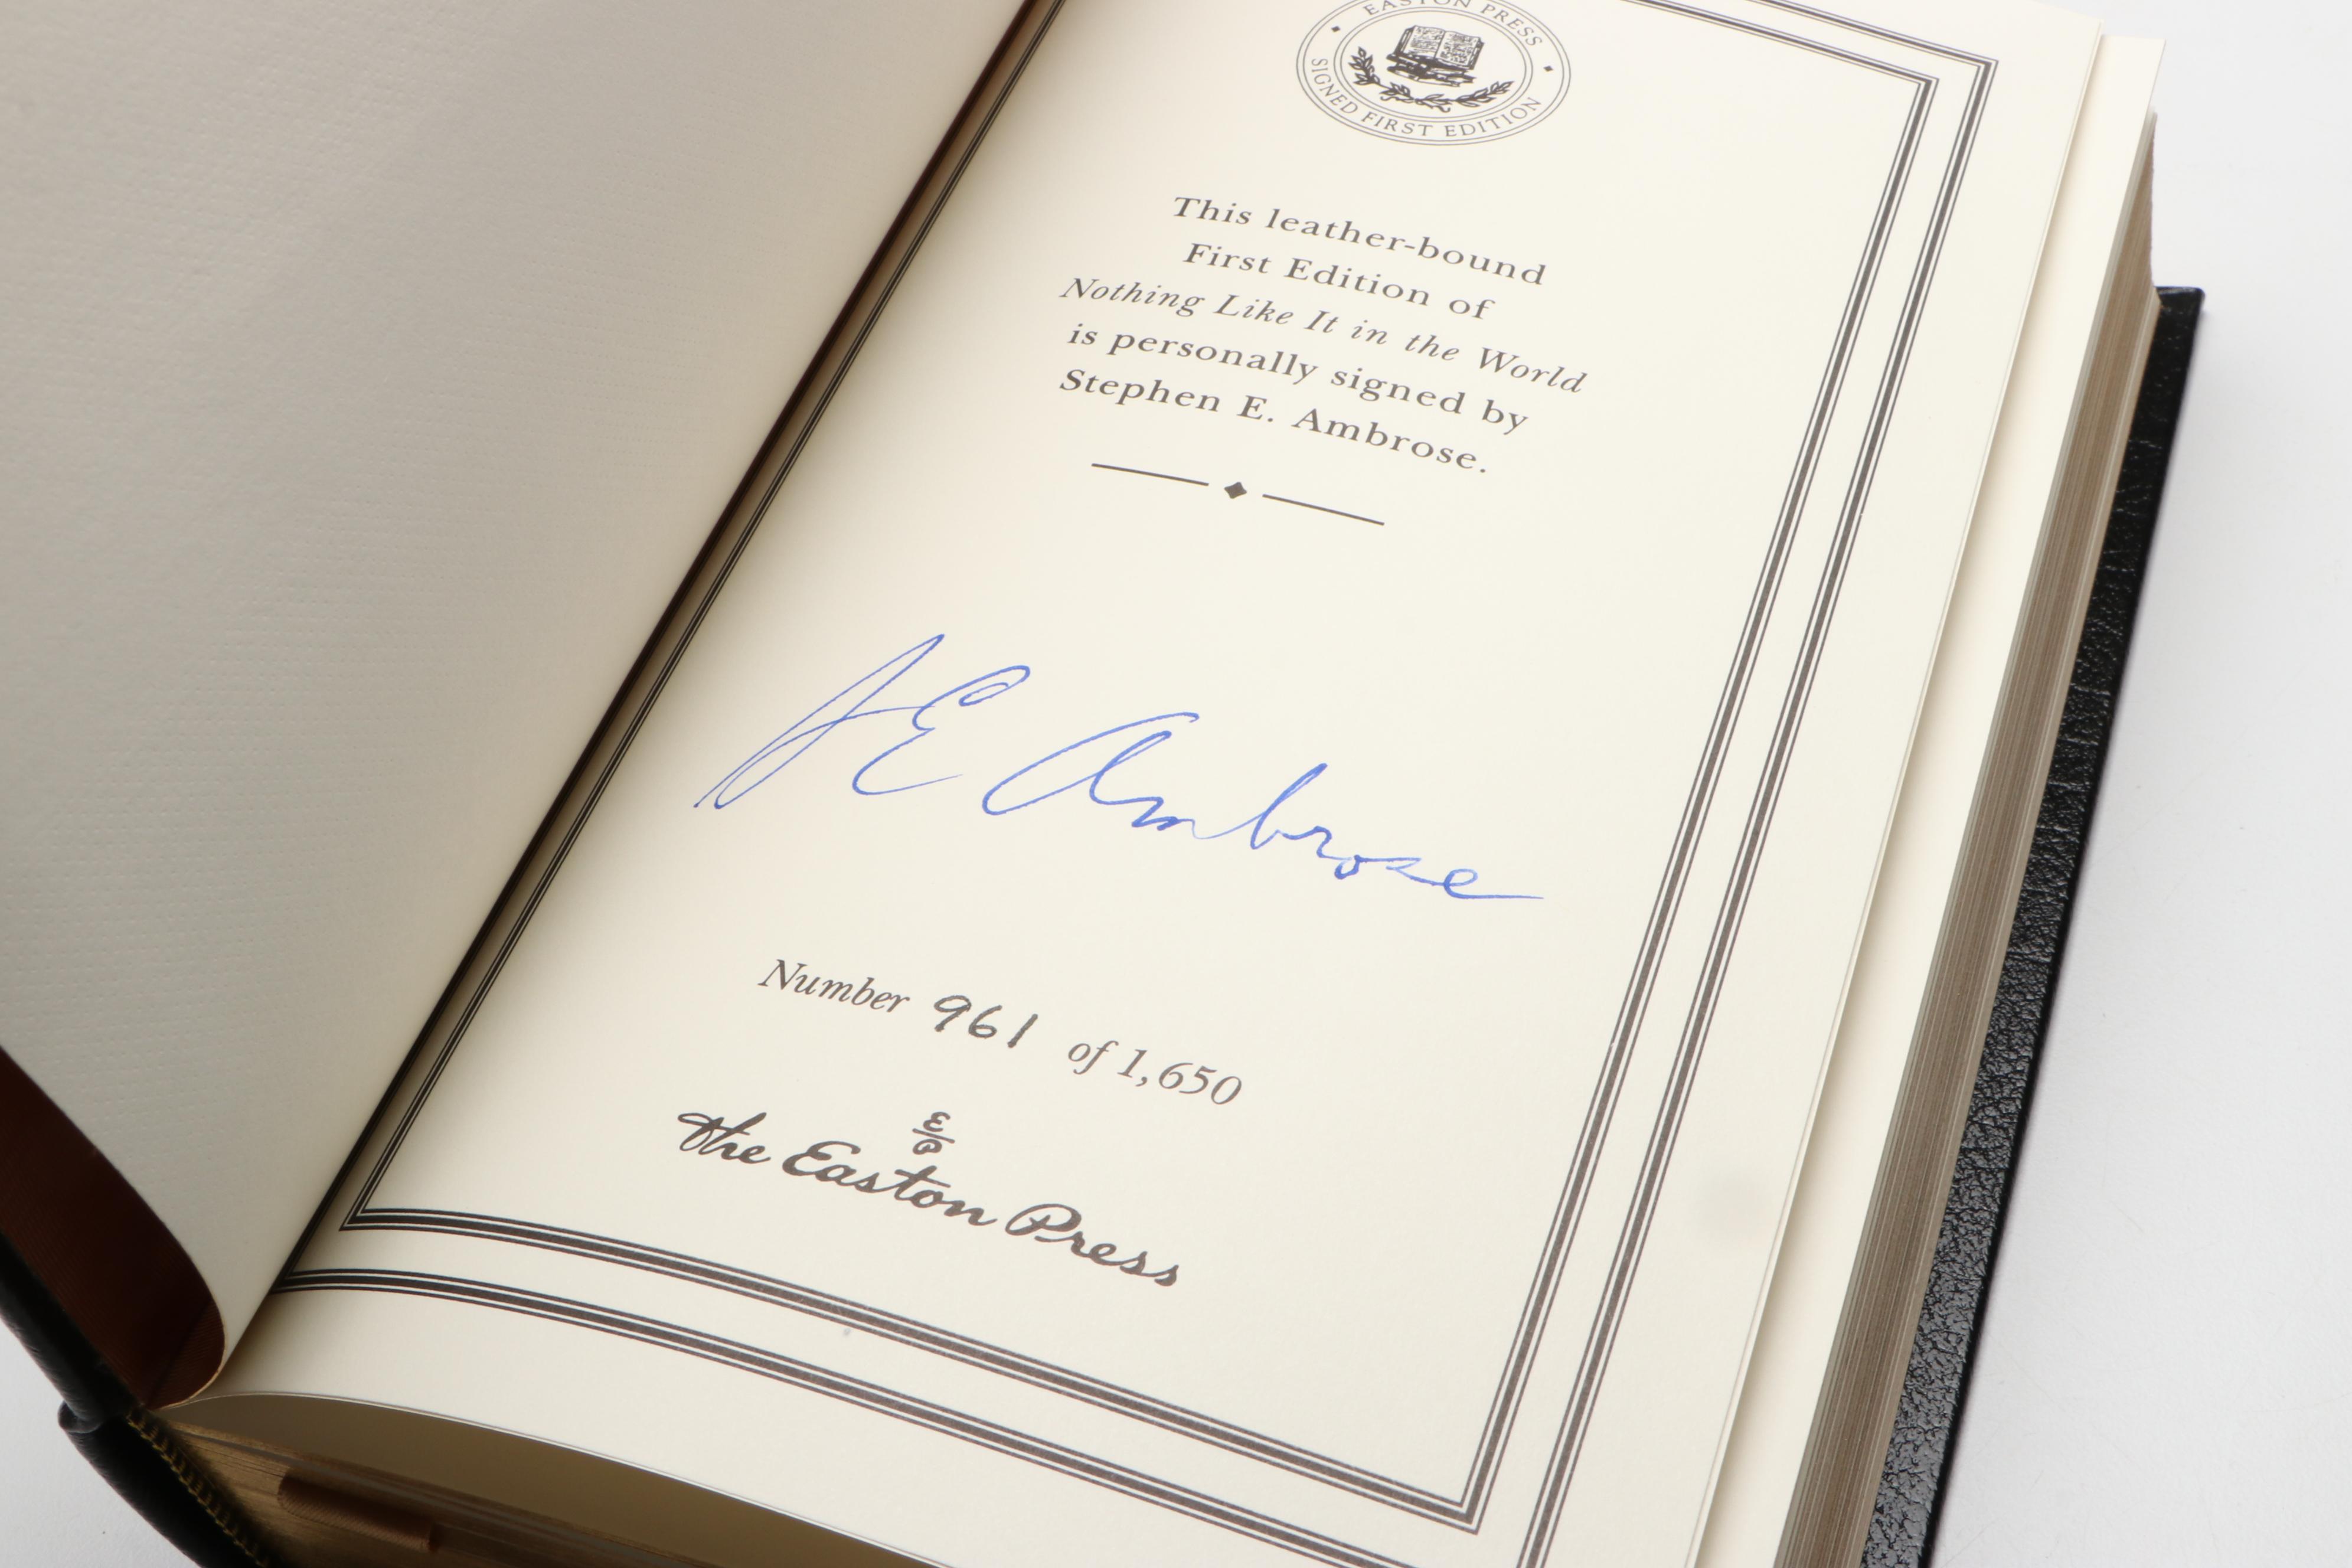 EASTON PRESS
SIGNED FIRST EDITION
This leather-bound
First Edition of
Nothing Like It in the World
is personally signed by
Stephen E. Ambrose.
S E Ambrose
Number 961 of 1,650
E
P
The Easton Press